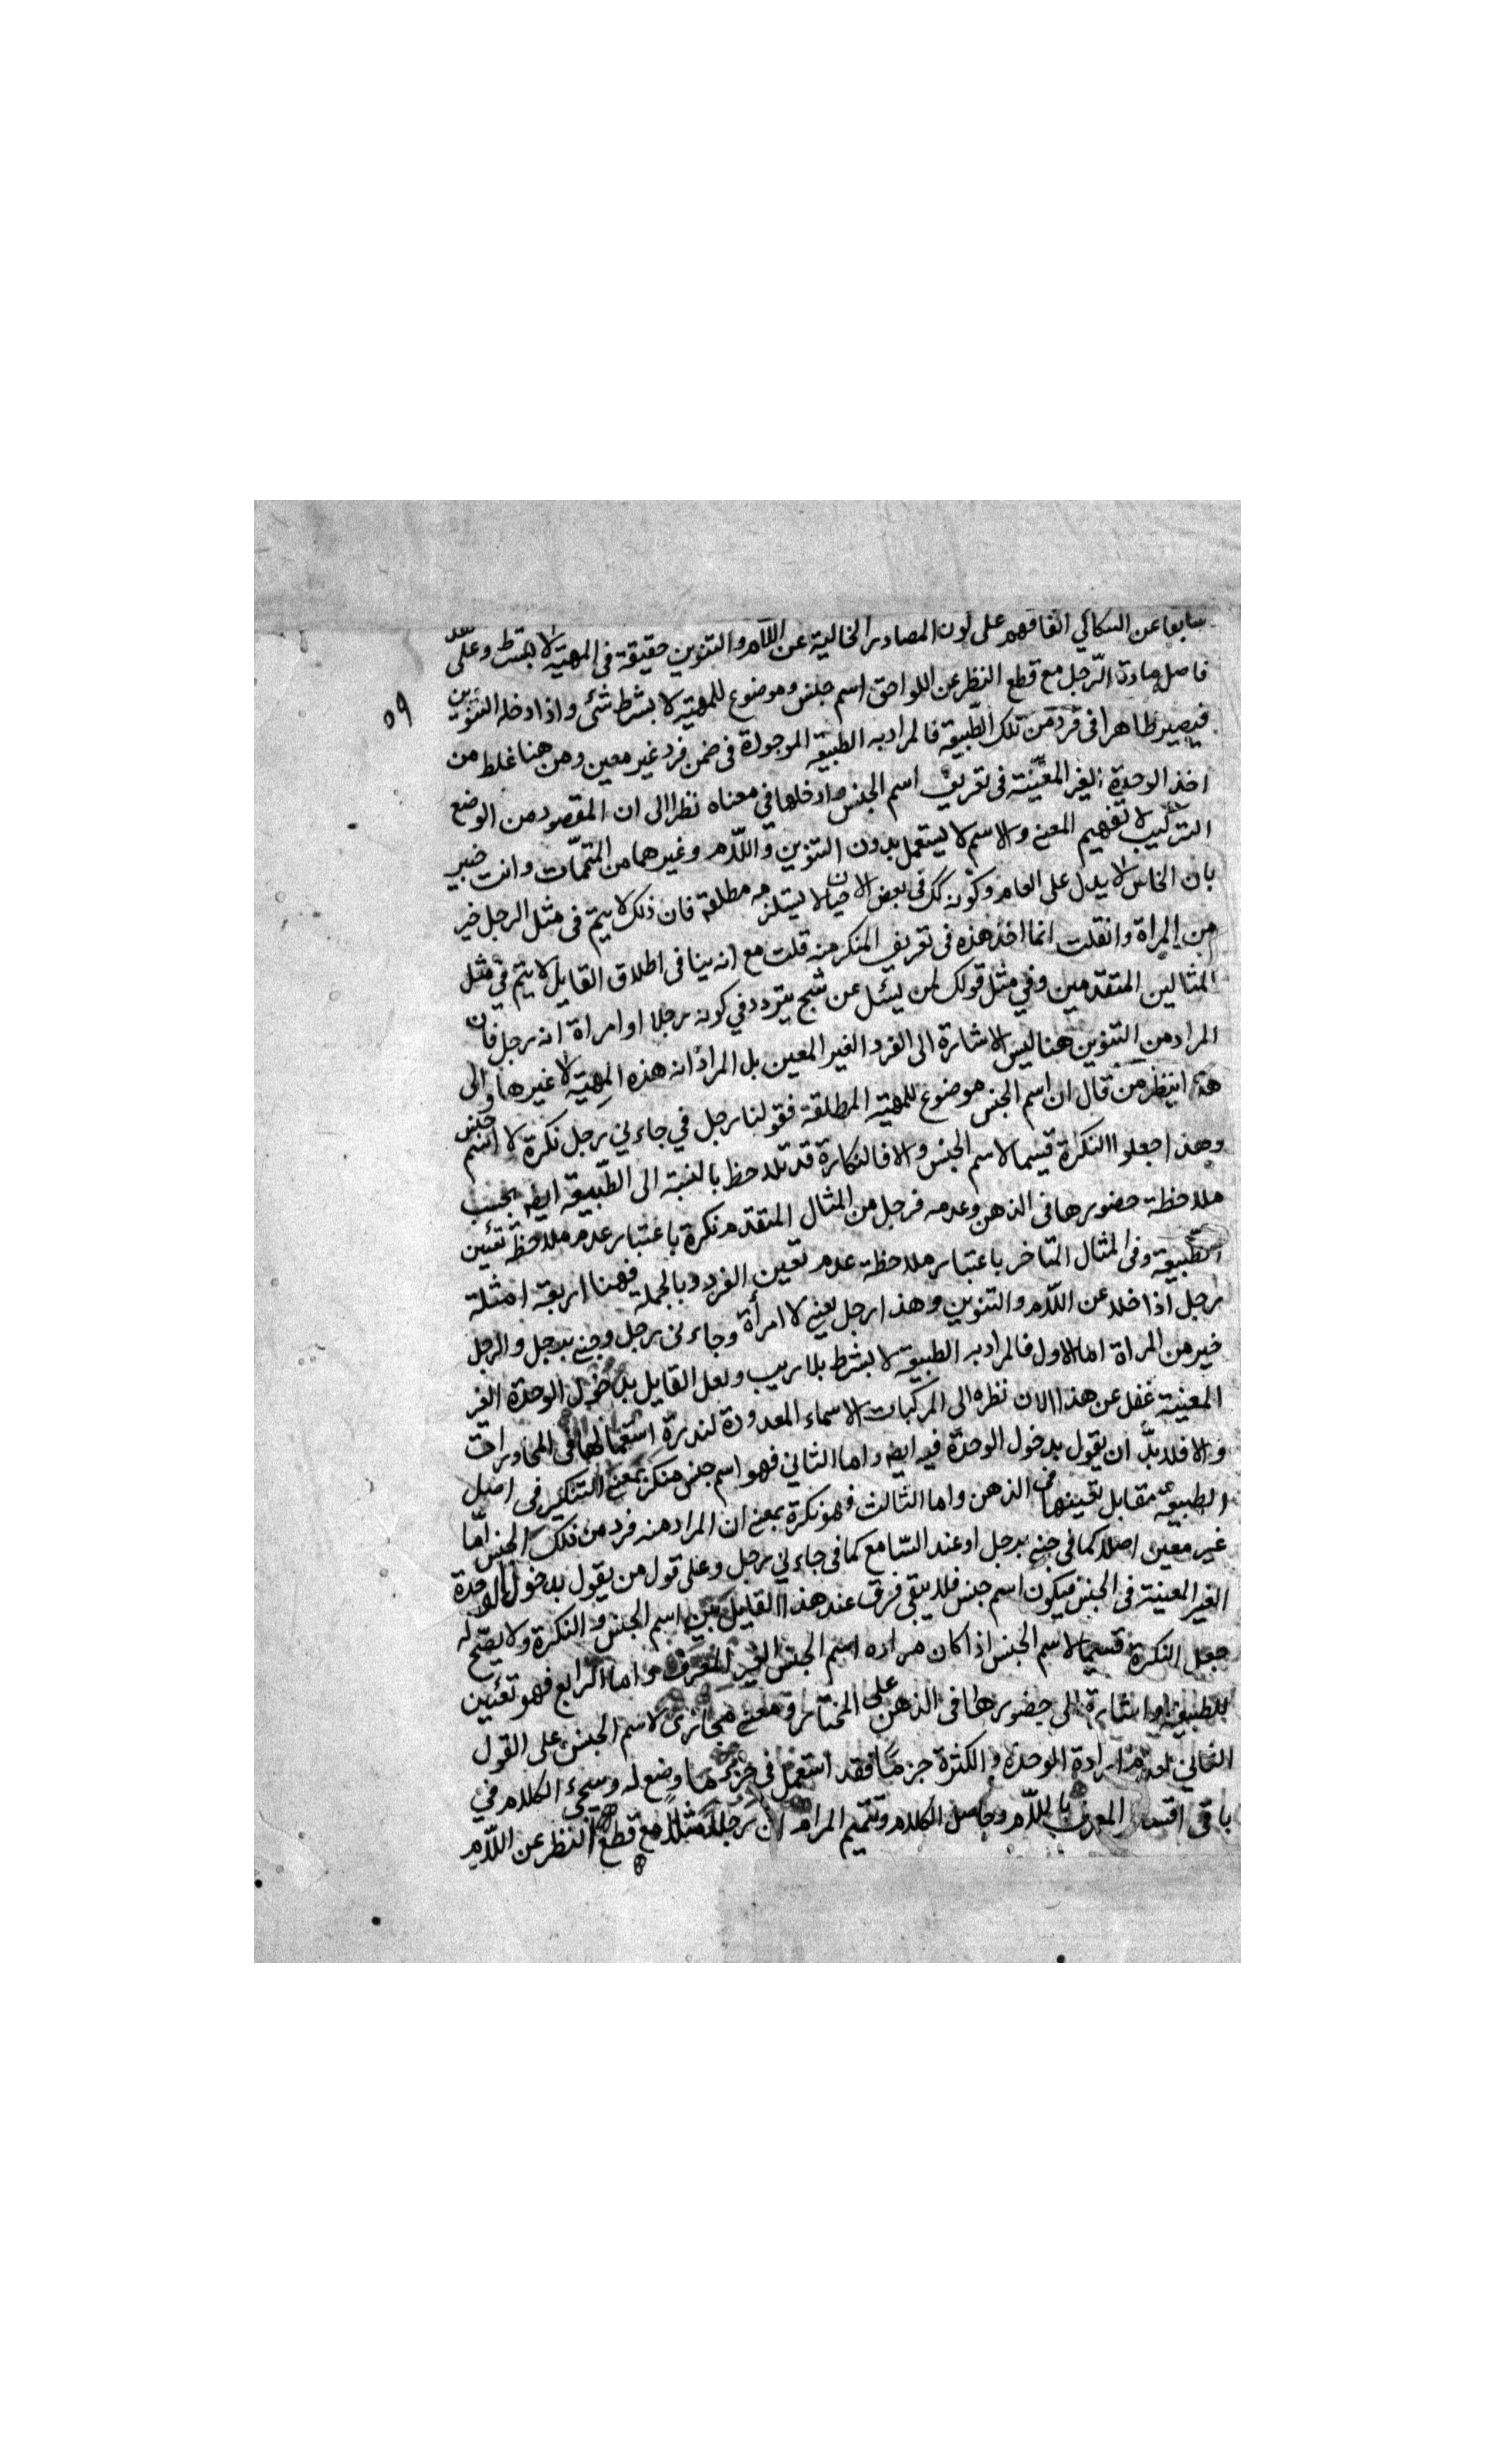 سابقا عن السكاكي اتفاقهم على كون المصادر الخالية عن اللام والتنوين حقيقة في المهية لا بشرط وعلى
فاصل مادة الرّجل مع قطع النظر عن اللواحق اسم جنس وموضوع للمهية لا بشرط شئ واذا دخله التنوين
فيصير ظاهرا في فرد من تلك الطّبيعة فالمراد به الطبيعة الموجودة في ضمن فرد غير معين ومن هنا غلط من
اخذ الوحدة الغير المعيّنة في تعريف اسم الجنس وادخلها في معناه نظرا الى ان المقصود من الوضع
التركيب لا تفهيم المعنى والاسم لا يستعمل بدون التنوين واللّام وغيرهما من المتمّمات وانت خبير
بان الخاص لا يدل على العام وكونه كك في بعض الاحيان لا يستلزمه مطلقة فان ذلك لا يتم في مثل الرجل خير
من المراة وان قلت انما اخذ هذه في تعريف المنكر منه قلت مع انه ينافي اطلاق القايل لا يتم في مثل
المثالين المتقدمين وفي مثل قولك لمن يسئل عن شبح يتردد في كونه رجلا او امراة انه رجل فان
المراد من التنوين هنا ليس الاشارة الى الفرد الغير المعين بل المراد انه هذه المهية لا غيرها والى
هذا ينظر من قال ان اسم الجنس موضوع للمهية المطلقة فقولنا رجل في جاءني رجل نكرة لا اسم جنس
وهذا جعلوا النكرة قسيما لاسم الجنس والا فالنكارة قد تلاحظ بالنسبة الى الطّبيعة ايضه بحسب
ملاحظة حضورها في الذهن وعدمه فرجل من المثال المتقدم نكرة باعتبار عدم ملاحظة تعيّن
الطّبيعة وفي المثال المتاخر باعتبار ملاحظة عدم تعين الفرد وبالجملة فهنا اربعة امثلة
رجل اذا خلا عن اللّام والتنوين وهذا رجل يعنى لا امرأة وجاءني رجل وجئنى برجل والرجل
خير من المراة اما الاول فالمراد به الطبيعة لا بشرط بلا ريب ولعل القايل بدخول الوحدة الغير
المعينة غفل عن هذا الان نظره الى المركبات الاسماء المعدودة لندرة استعمالها في المحاورات
والا فلا بدّ ان يقول بدخول الوحدة فيه ايضه واما الثاني فهو اسم جنس منكر بمعنى التنكير في اصل
الطبيعة مقابل تعينها في الذهن واما الثالث فهو نكرة بمعنى ان المراد منه فرد من ذلك الجنس امّا
غير معين اصلا كما في جئنى برجل او عند السّامع كما في جاءني رجل وعلى قول من يقول بدخول الوحدة
الغير المعينة في الجنس فيكون اسم جنس فلا يبقى فرق عند هذا القايل بين اسم الجنس والنكرة ولا يصّح له
جعل النكرة قسيما لاسم الجنس اذا كان مراده اسم الجنس الغير المعرف واما الرابع فهو تعيّن
للطبيعة واشارة الى حضورها في الذهن على المختار ومعنى مجازى لاسم الجنس على القول
الثاني لعدم ارادة الوحدة والكثرة جزما فقد استعمل في جزء ما وضع له وسيجئ الكلام في
باقي اقسام المعرف باللّام وحاصل الكلام وتتميم المرام ان رجلا مثلا مع قطع النظر عن اللّام
٥٩